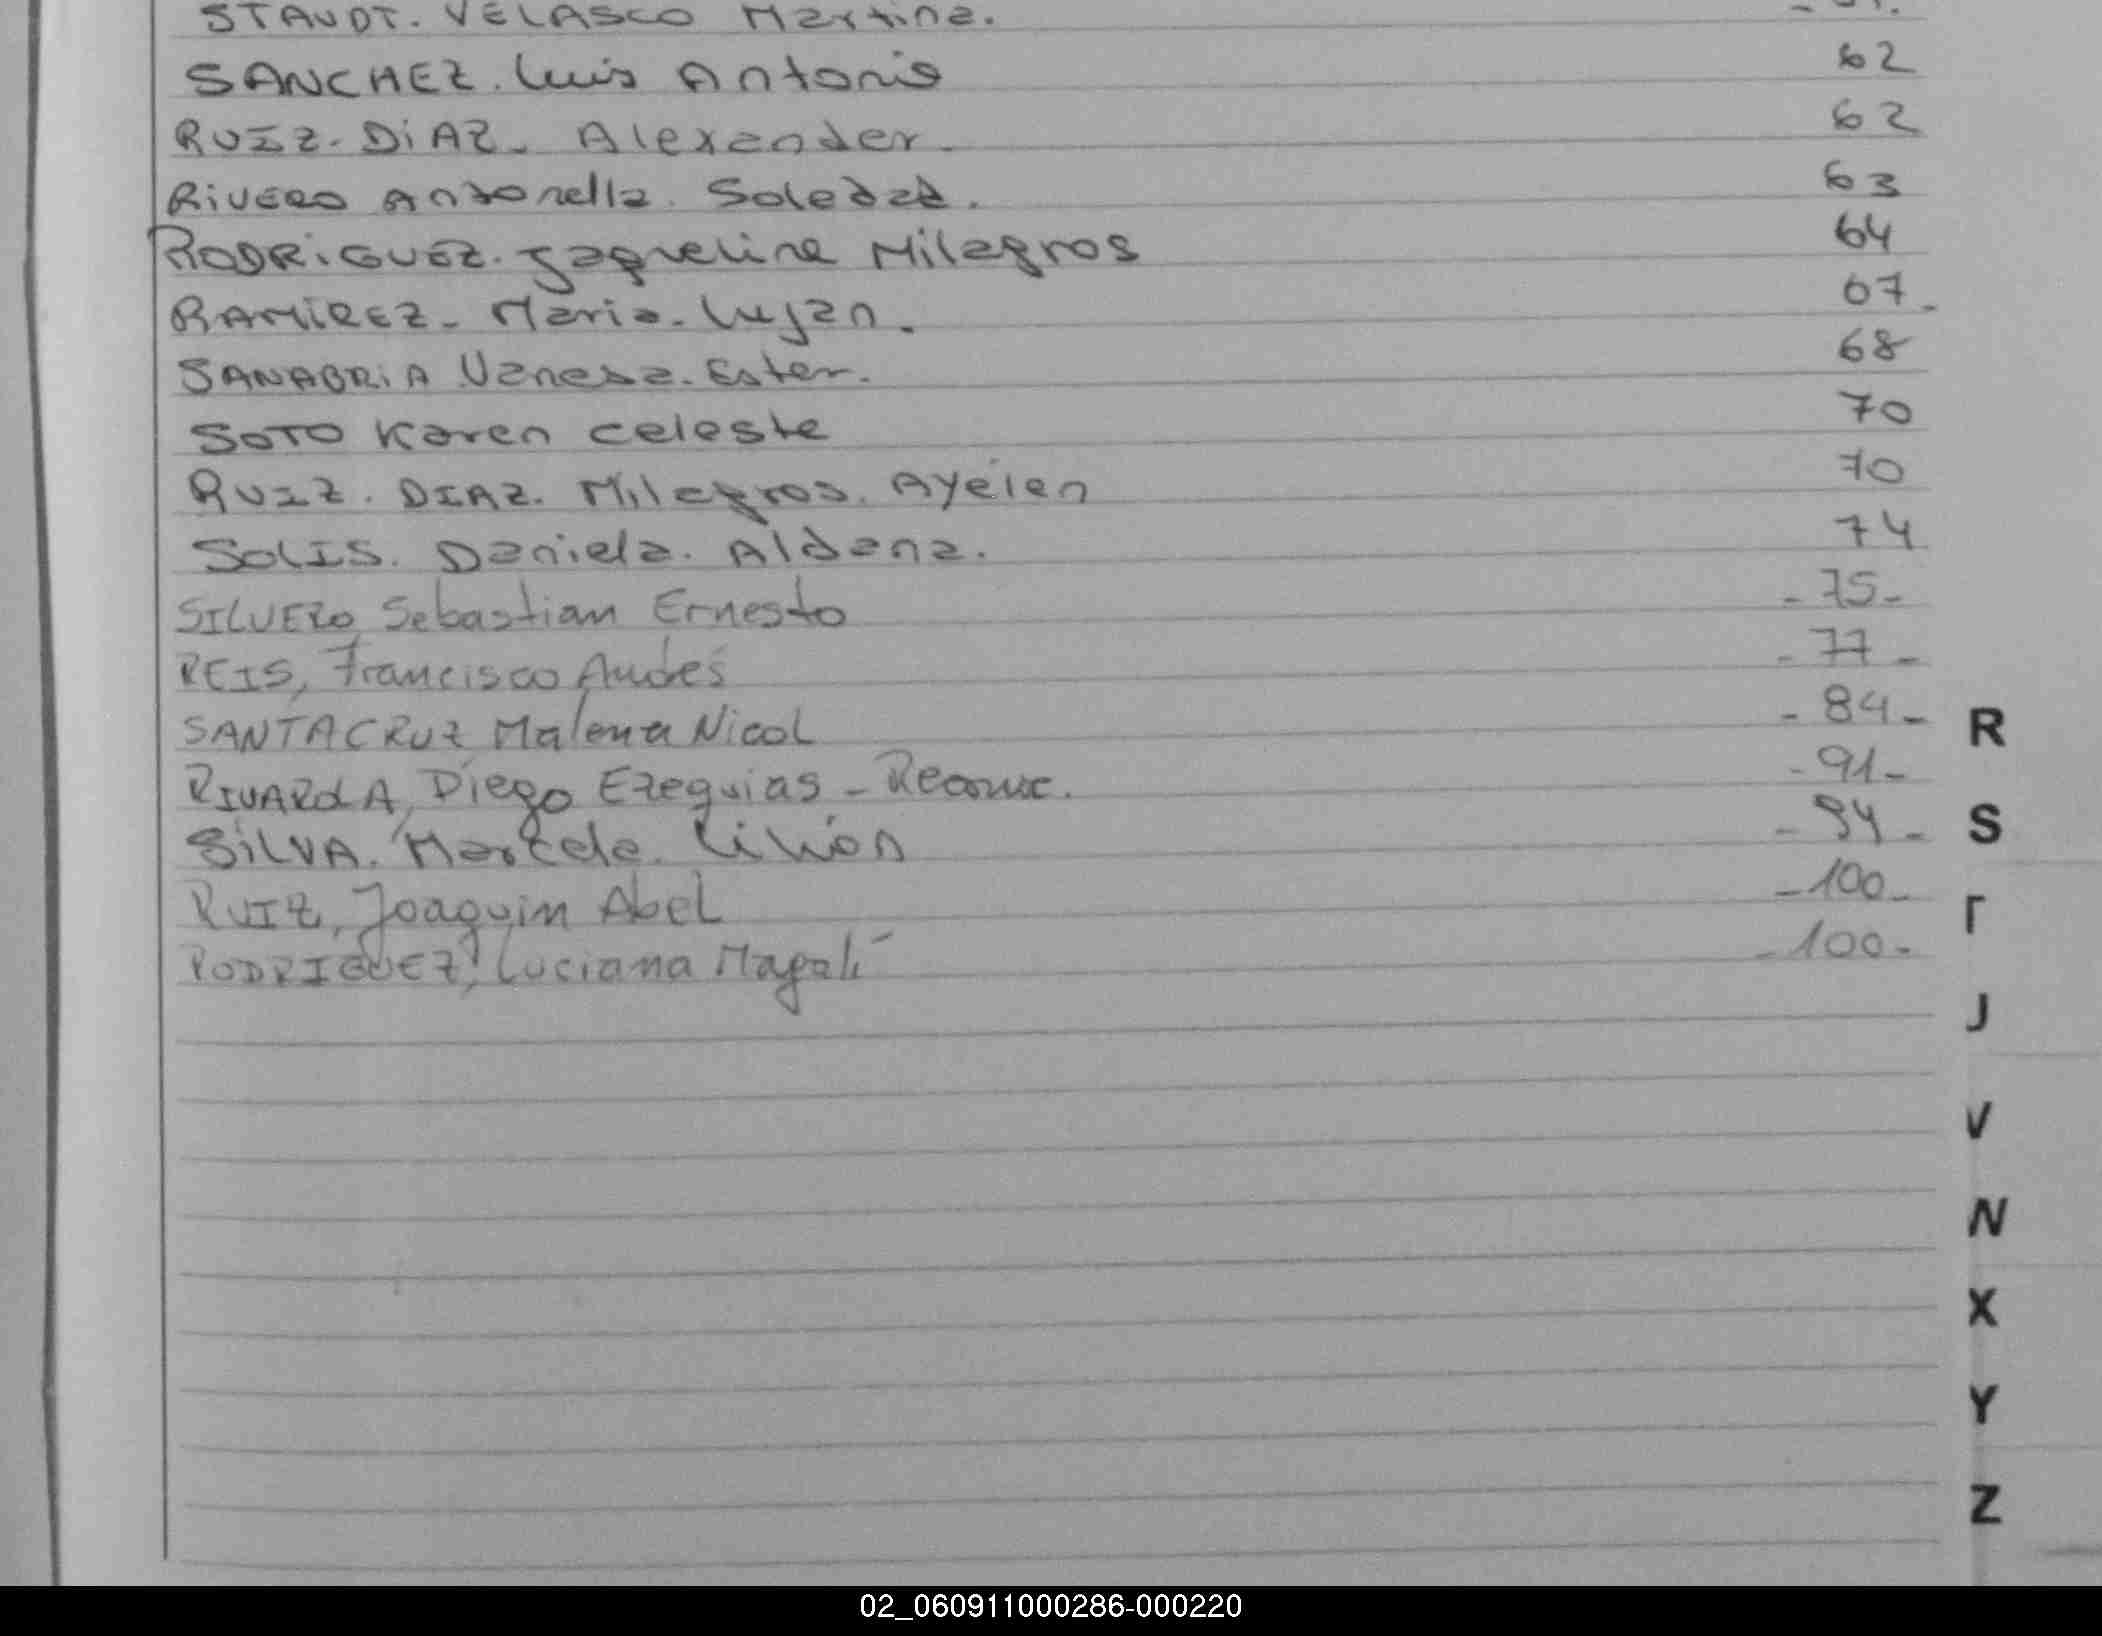 STAUDT. VELASCO Martina.
SANCHEZ. Luis Antonio 62
RUIZ. DiAZ. Alexander. 62
RiVERO Antonella. Soledad. 63
RODRiGUEZ. Jaqueline Milagros 64
RAMiREZ. Maria. Lujan. 67
SANABRiA Vanesa. Ester. 68
SOTO Karen celeste 70
RUIZ. DIAZ. Milagros. Ayélen 70
SOLIS. Daniela. Aldana. 74
SILVERO Sebastian Ernesto - 75 -
REIS, Francisco Andrés - 77 -
SANTACRUZ Malena Nicol - 84 -
RIVAROLA, Diego Ezequias - Reconoc. - 91 -
SiLVA. Marcela. Lilián - 94 -
RUIZ, Joaquin Abel - 100 -
RODRIGUEZ, Luciana Magali - 100 -
R
S
T
J
V
N
X
Y
Z
02_060911000286-000220